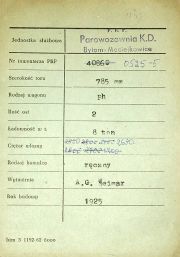 Jednostka służbowa
P.K.P.
Parowozownia K.D.
Bytom-Maciejkowice
Nr inwentarza PKP 40860 0525-5
Szerokość toru 785 mm
Rodzaj wagonu ph
Ilość osi 2
Ładowność w t 8 ton
Ciężar własny 2680
Rodzaj hamulca ręczny
Wytwórnia A.G. Weimar
Rok budowy 1925